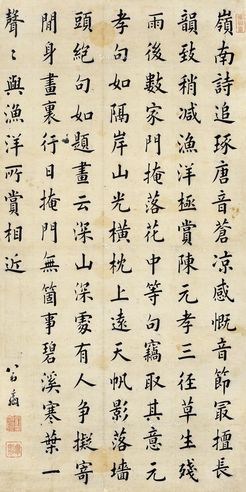 嶺南詩追琢唐音蒼涼感慨音節冣擅長
韻致稍减漁洋極賞陳元孝三徑草生殘
雨後數家門掩落花中等句竊取其意元
孝句如隔岸山光橫枕上遠天帆影落墻
頭絕句如題畫云深山深處有人爭擬寄
閒身畫裏行日掩門無箇事碧溪寒葉一
聲〻與漁洋所賞相近